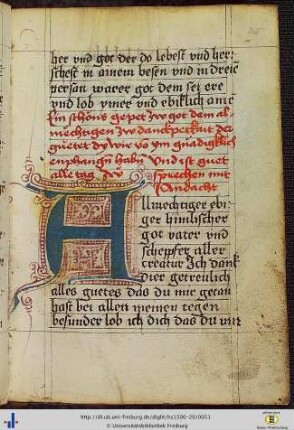 her vnd got der do lebest vnd her¬
schest in ainem besen vnd in dreie
persan warer got dem sei ere
vnd lob ymer vnd ebiklich ame
Ein schons gepet zw got dem al
mechtigen zw danckperkait der
guetet dy wir vo ym gnadigklich
enphangn habn Vnd ist guet
alle tag zw sprechen mit
Andacht
Allmechtiger ebi¬
ger himlischer
got vater vnd
schepfer aller
creatur Ich dank
dier getreulich
alles guetes das du mir getan
hast bei allen meinen tegen
besunder lob ich dich das du mir
http://dl.ub.uni-freiburg.de/diglit/hs1500-20/0051
© Universitätsbibliothek Freiburg